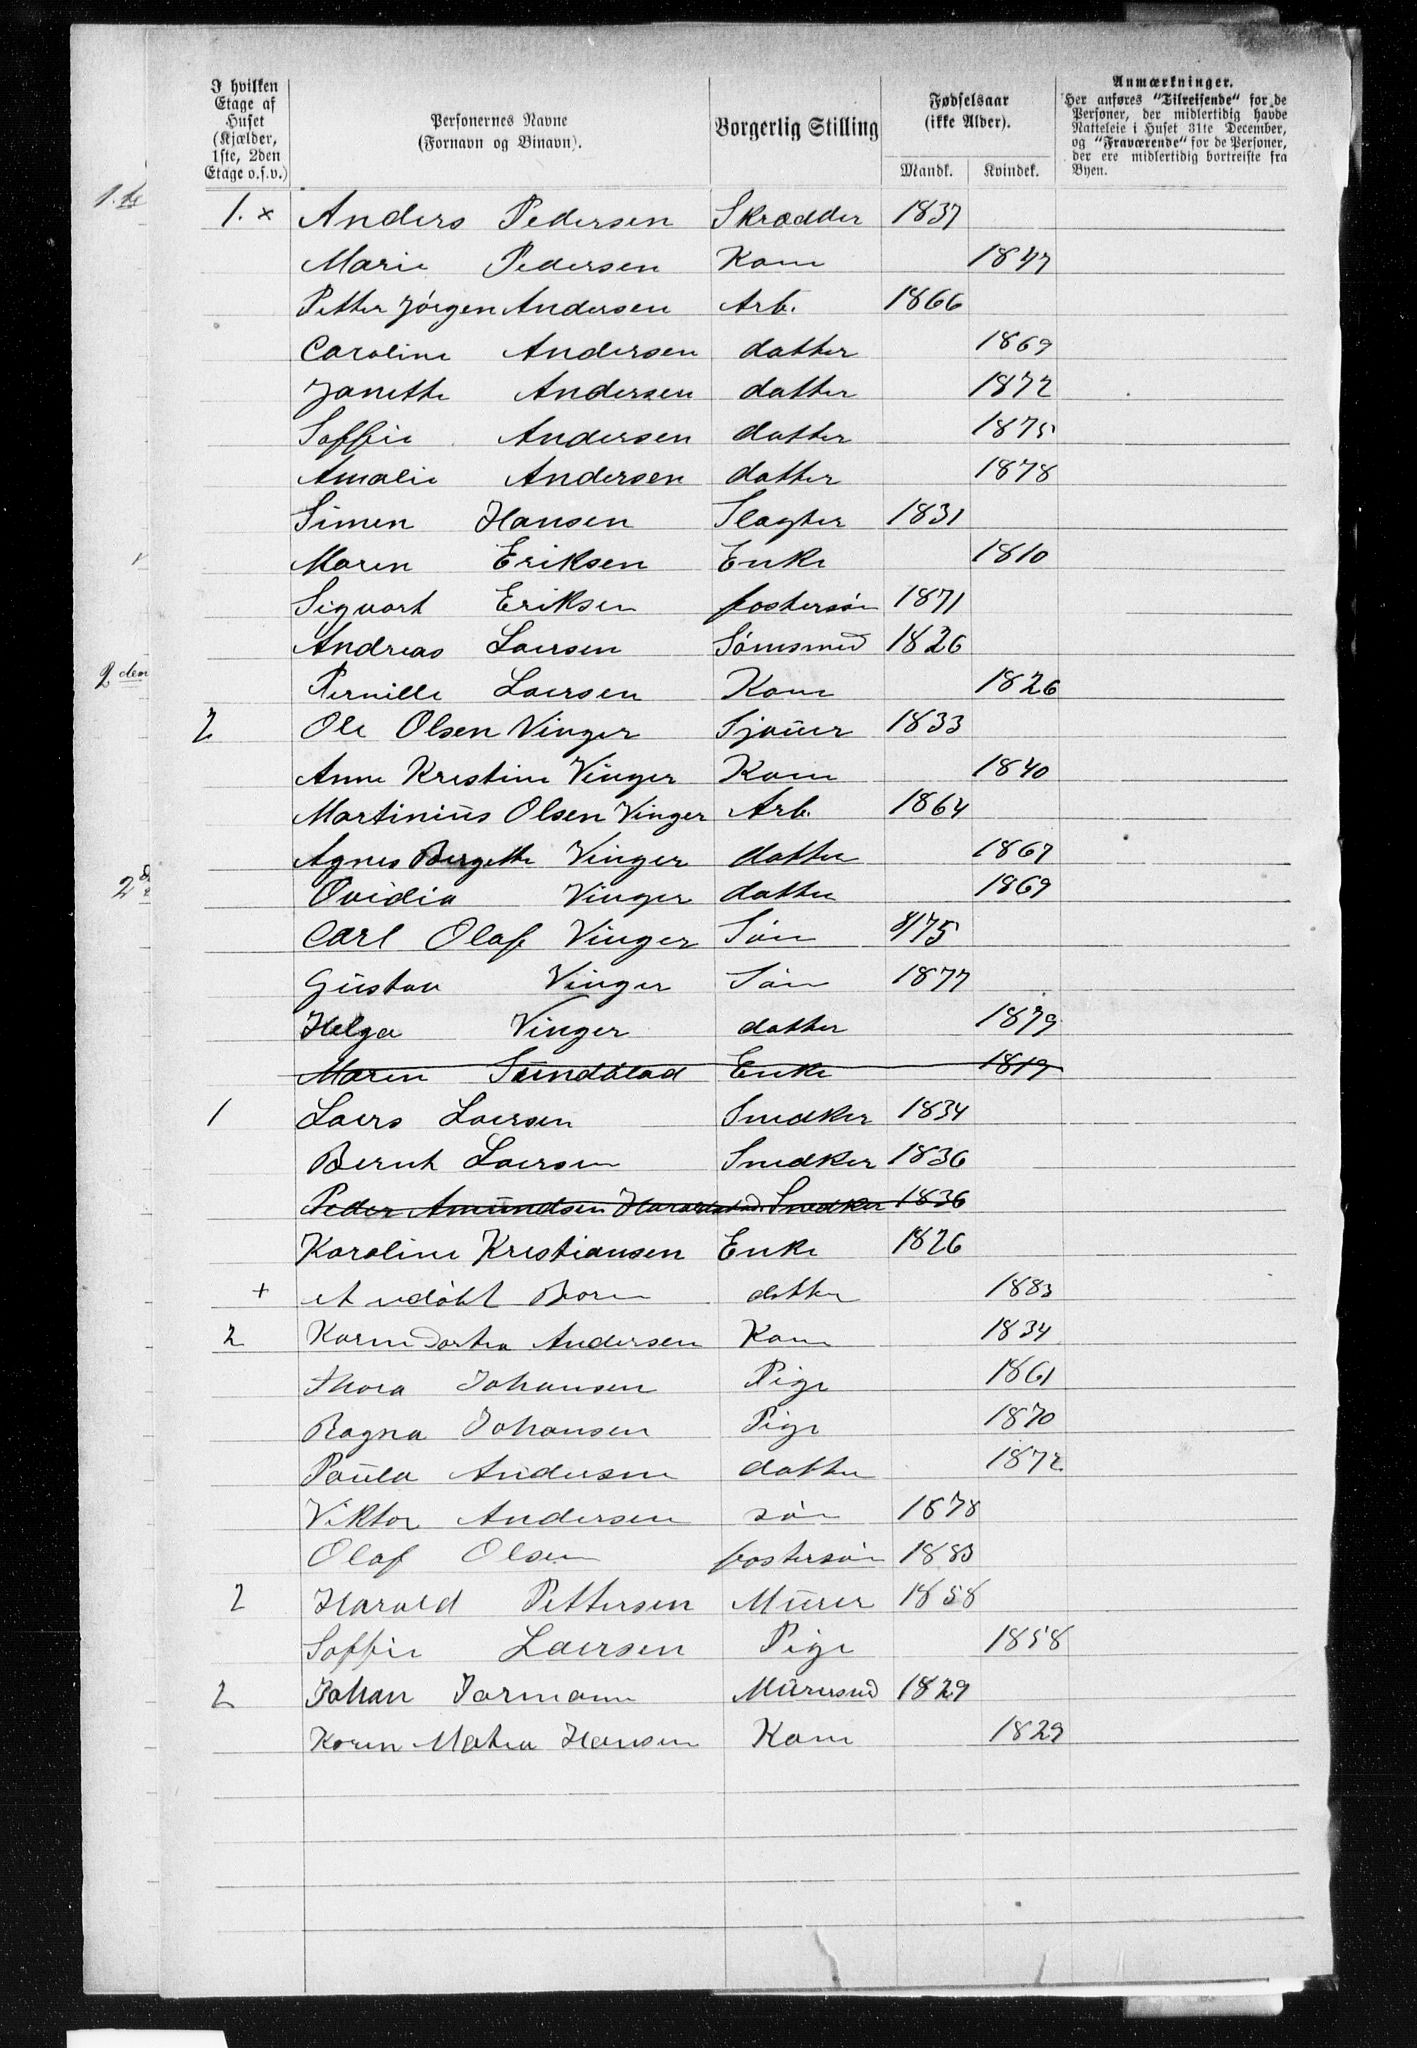 I hvilken Etage af Huset (Kjælder, 1ste, 2den Etage o.s.v.) | Personernes Navne (Fornavn og Binavn). | Borgerlig Stilling | Fødselsaar (ikke Alder). Mandk. Kvindek. | Anmærkninger. Her anføres "Tilreisende" for de Personer, der midlertidig havde Natteleie i Huset 31te December, og "Fraværende" for de Personer, der ere midlertidig bortreiste fra Byen.
1. × Anders Pedersen Skrædder 1837
Marie Pedersen Kone 1847
Petter Jörgen Andersen Arb. 1866
Caroline Andersen datter 1869
Janette Andersen datter 1872
Soffie Andersen datter 1875
Amalie Andersen datter 1878
Simen Hansen Slagter 1831
Maren Eriksen Enke 1810
Sigvart Eriksen fostersön 1871
Andreas Laersen Sömsmed 1826
Pernille Laersen Kone 1826
2 Ole Olsen Vinger Sjouer 1833
Anne Kristine Vinger Kone 1840
Martinius Olsen Vinger Arb. 1864
Agnes Bergette Vinger datter 1867
Ovidia Vinger datter 1869
Carl Olaf Vinger Sön 8/75
Gustav Vinger Sön 1877
Helga Vinger datter 1879
Maren Sundblad Enke 1819
1 Laers Laersen Snedker 1834
Bernt Laersen Snedker 1836
Peder Amundsen Snedker 1836
Karoline Kristiansen Enke 1826
+ et udöbt Barn datter 1883
2 Karen Dortea Andersen Kone 1834
Thora Johansen Pige 1861
Ragna Johansen Pige 1870
Paula Andersen datter 1872
Viktor Andersen sön 1878
Olaf Olsen fostersön 1883
2 Harald Pettersen Murer 1858
Soffie Laersen Pige 1858
2 Johan Jormann Murersvd 1829
Karen Matea Hansen Kone 1829